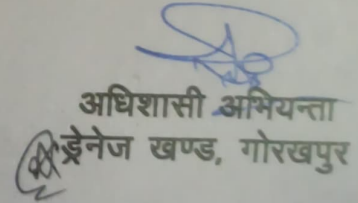 अधिशासी अभियन्ता
ड्रेनेज खण्ड, गोरखपुर